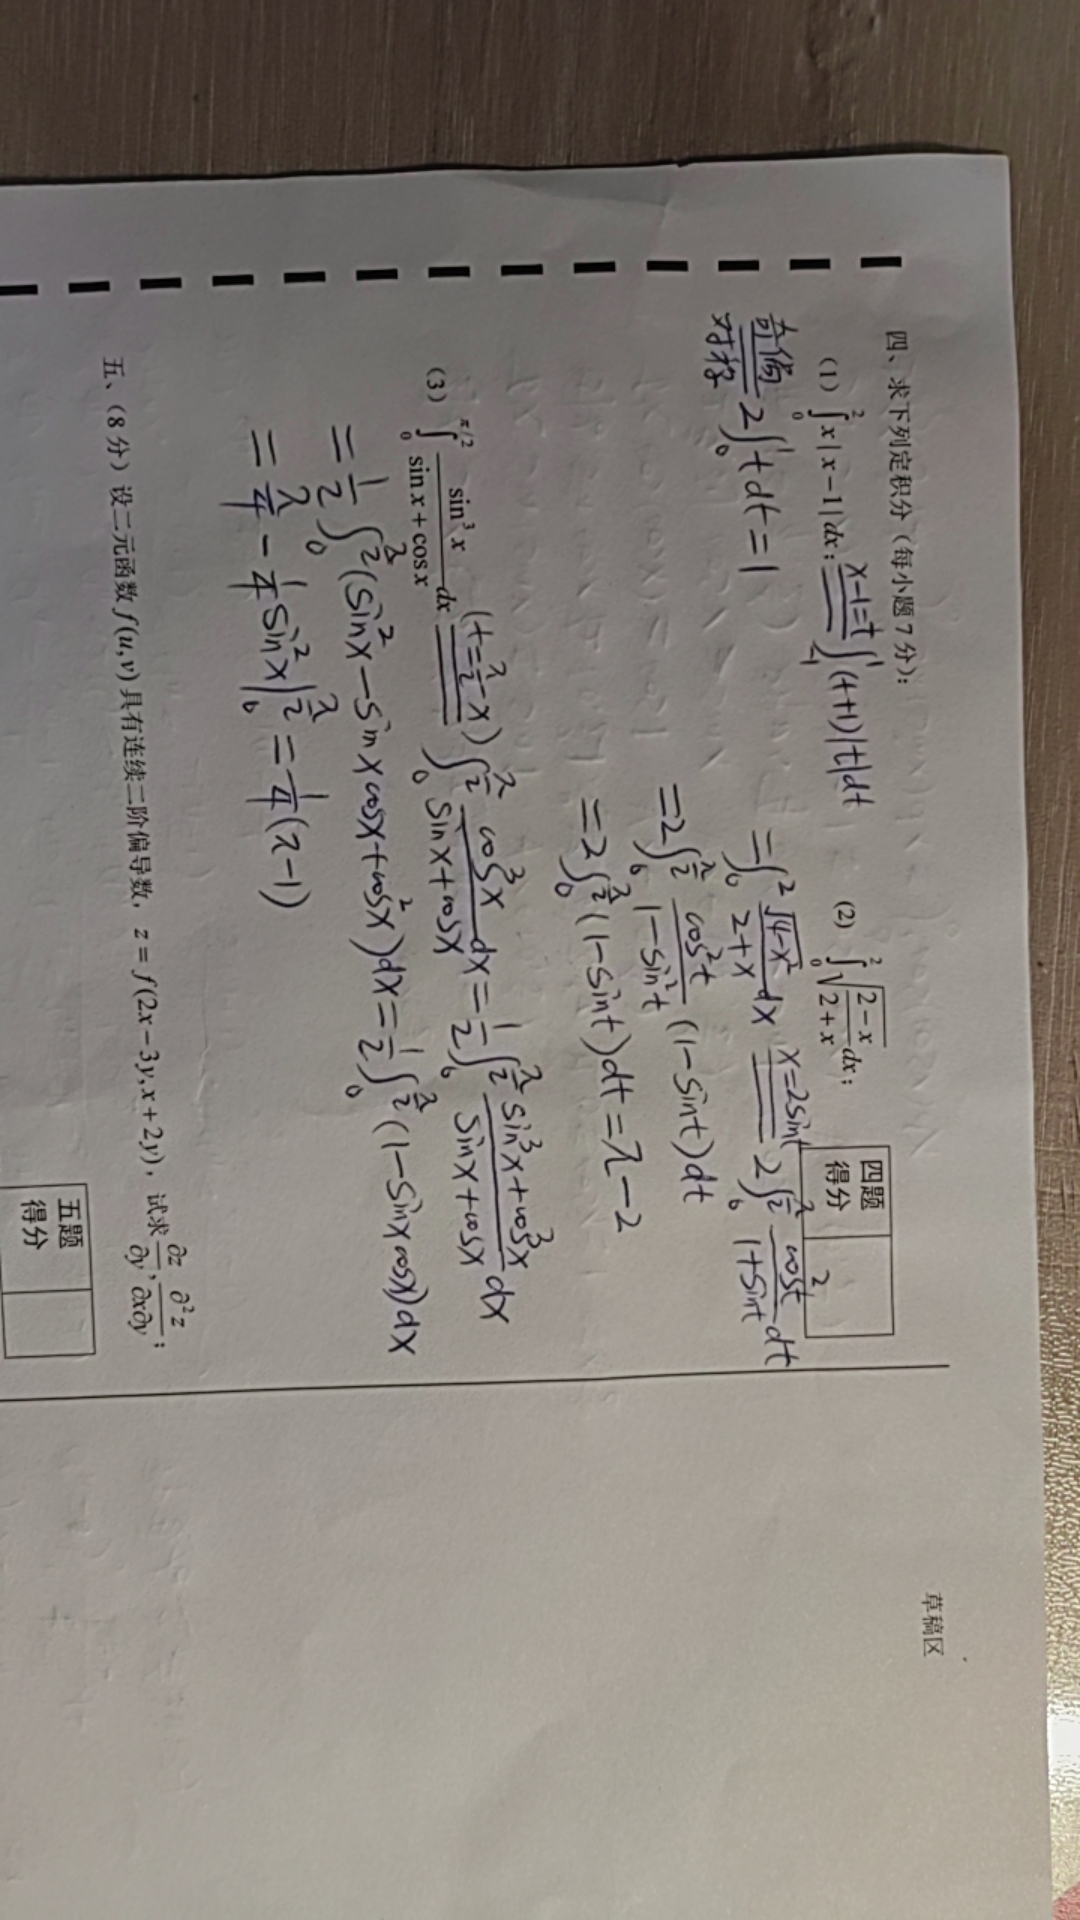 草稿区
四、求下列定积分（每小题7分）：
四题
得分
(1) ∫₀² x|x−1|dx; x−1=t ∫₋₁¹ (t+1)|t|dt
奇偶
对称 2∫₀¹ t dt = 1
(2) ∫₀² √((2−x)/(2+x)) dx;
= ∫₀² √(4−x²)/(2+x) dx x=2sint 2∫₀^(π/2) cos²t/(1+sint) dt
= 2∫₀^(π/2) cos²t/(1−sin²t) (1−sint)dt
= 2∫₀^(π/2) (1−sint)dt = π−2
(3) ∫₀^(π/2) sin³x/(sin x+cos x) dx (t=π/2−x) ∫₀^(π/2) cos³x/(sinx+cosx) dx = 1/2 ∫₀^(π/2) (sin³x+cos³x)/(sinx+cosx) dx
= 1/2 ∫₀^(π/2) (sin²x−sinxcosx+cos²x)dx = 1/2 ∫₀^(π/2) (1−sinxcosx)dx
= π/4 − 1/4 sin²x|₀^(π/2) = 1/4(π−1)
五、（8分）设二元函数 f(u,v) 具有连续二阶偏导数，z=f(2x−3y,x+2y)，试求 ∂z/∂y, ∂²z/∂x∂y；
五题
得分